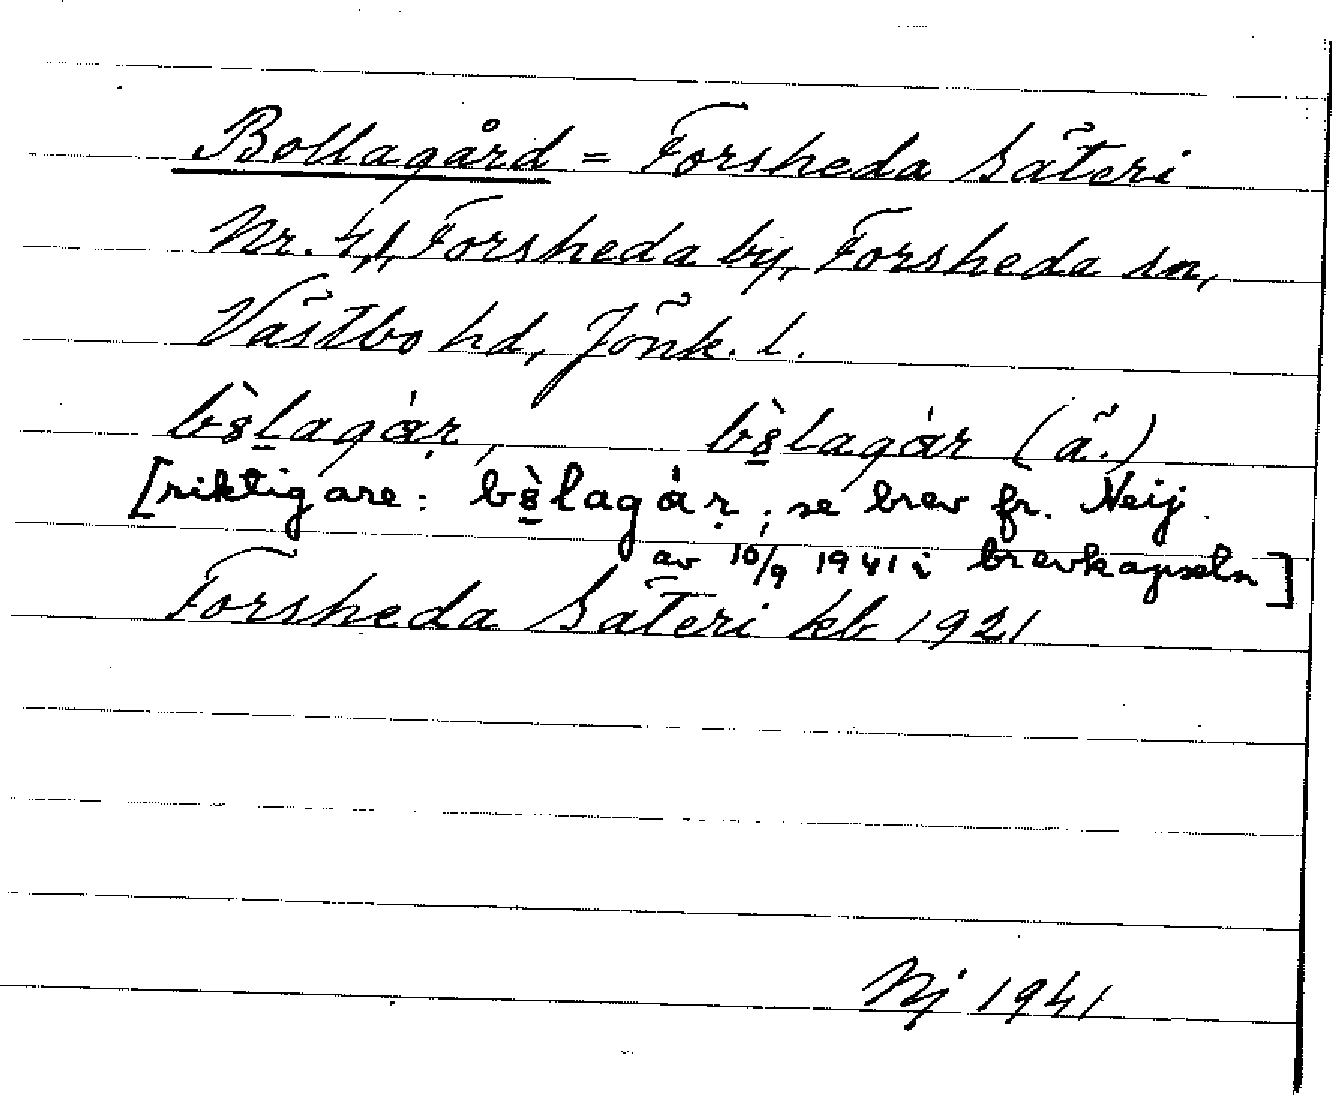 Bollagård = Forsheda Säteri
Nr. 4,1, Forsheda by, Forsheda sn,
Västbo hd, Jönk. l.
(ä.)
[riktigare: ; se brev fr. Neij.
av 10/9 1941 i brevkapseln]
Forsheda Säteri kb 1921
Nj 1941